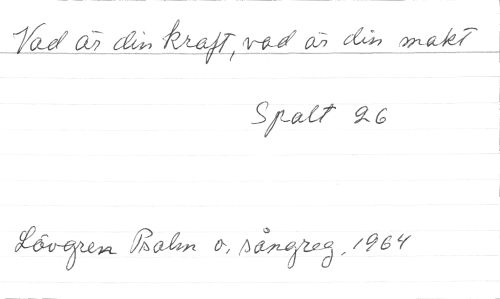 Vad är din kraft, vad är din makt
Spalt 26
Lövgren Psalm o. sångreg. 1964